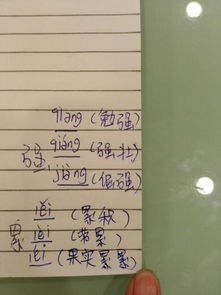 qiǎng (勉强)
强 qiáng (强壮)
jiàng (倔强)
lěi (累积)
累 lèi (带累)
léi (果实累累)